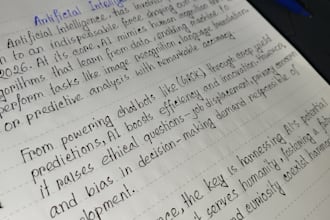 Artificial Intellig
Artificial Intelligence, has
to an indispensable force shaping our
2026. At its core, AI mimics human cognition through
algorithms that learn from data, enabling machines to
perform tasks like image recognition, language translation,
or predictive analysis with remarkable accuracy
From powering chatbots like (GROK) through deep world
predictions, AI boosts efficiency and innovation. However,
it raises ethical questions-job displacement, privacy
and bias in decision-making demand responsible
development.
the key is harnessing AI's potential
serves humanity, fostering a
and curiosity coexist